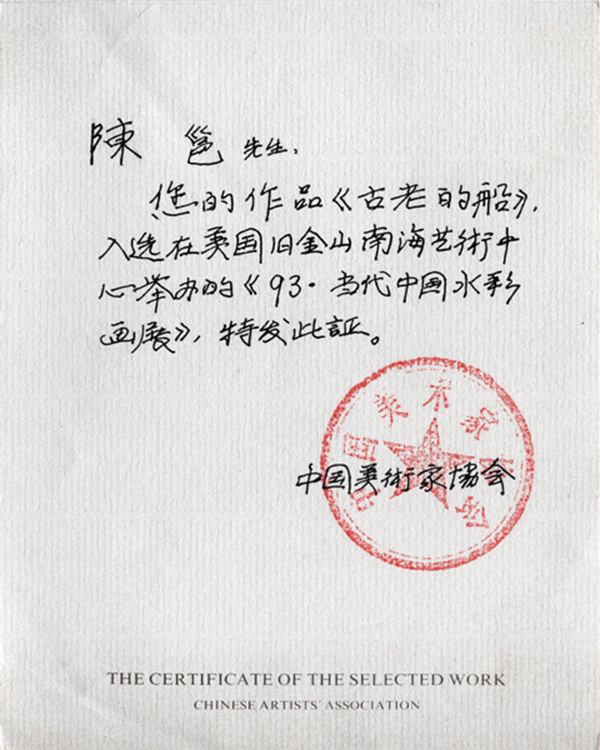 陳 邕 先生：
您的作品《古老的船》，
入选在美国旧金山南海艺術中
心举办的《93·当代中国水彩
画展》，特发此証。
中国美术家协会
中国美術家協会
THE CERTIFICATE OF THE SELECTED WORK
CHINESE ARTISTS' ASSOCIATION